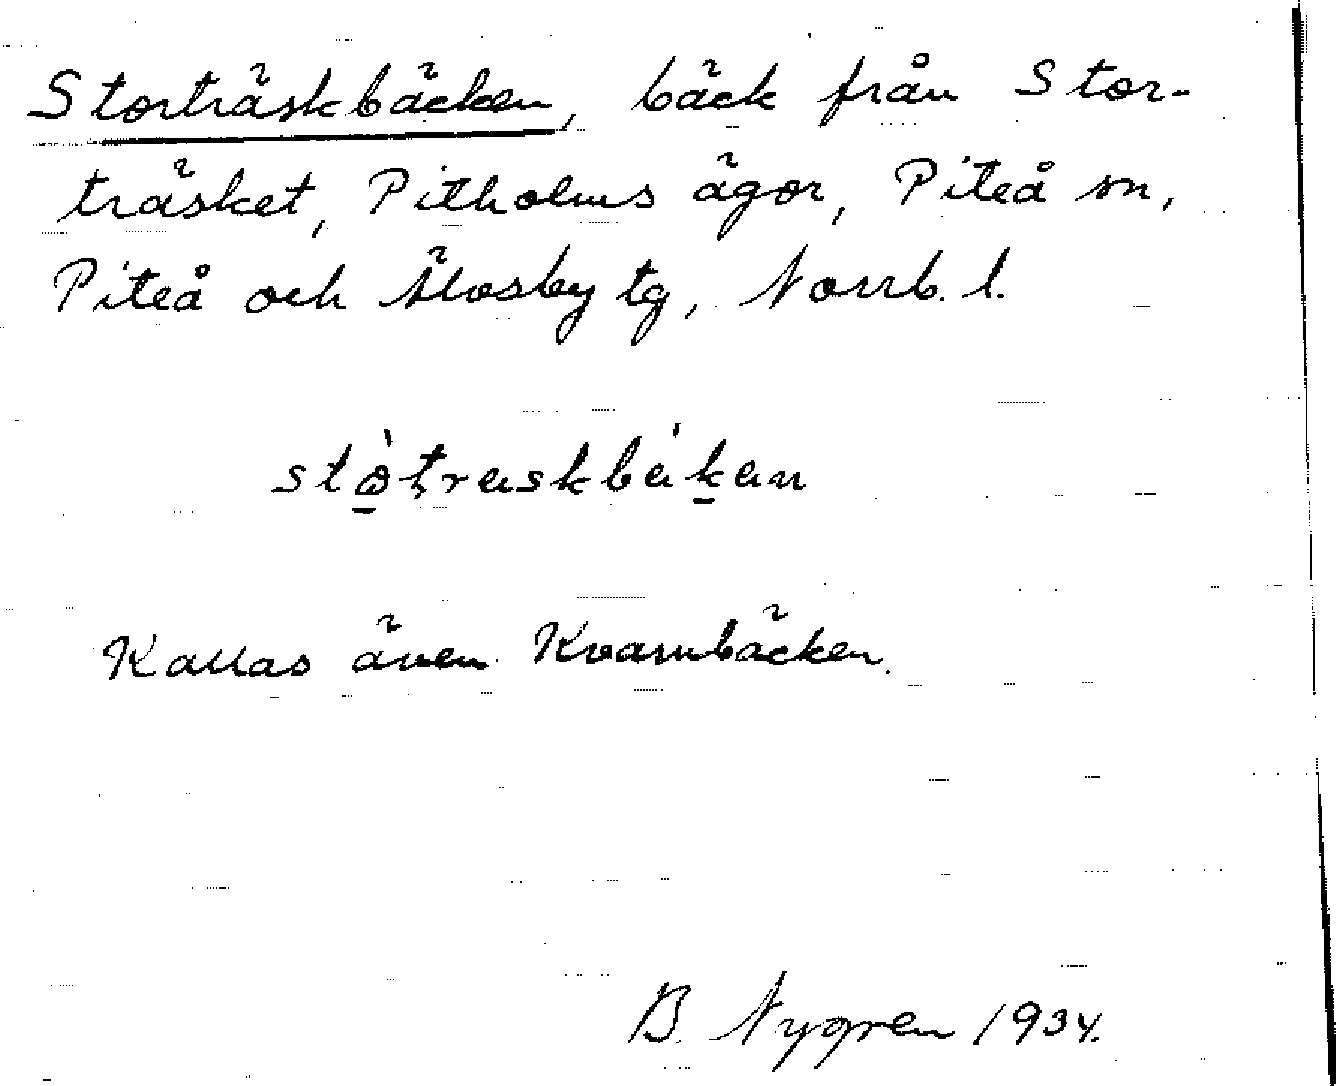 Storträskbäcken, bäck från Stor-
träsket, Pitholms ägor, Piteå sn,
Piteå och Älvsby tg, Norrb. l.
Kallas även Kvarnbäcken.
B. Nygren 1934.